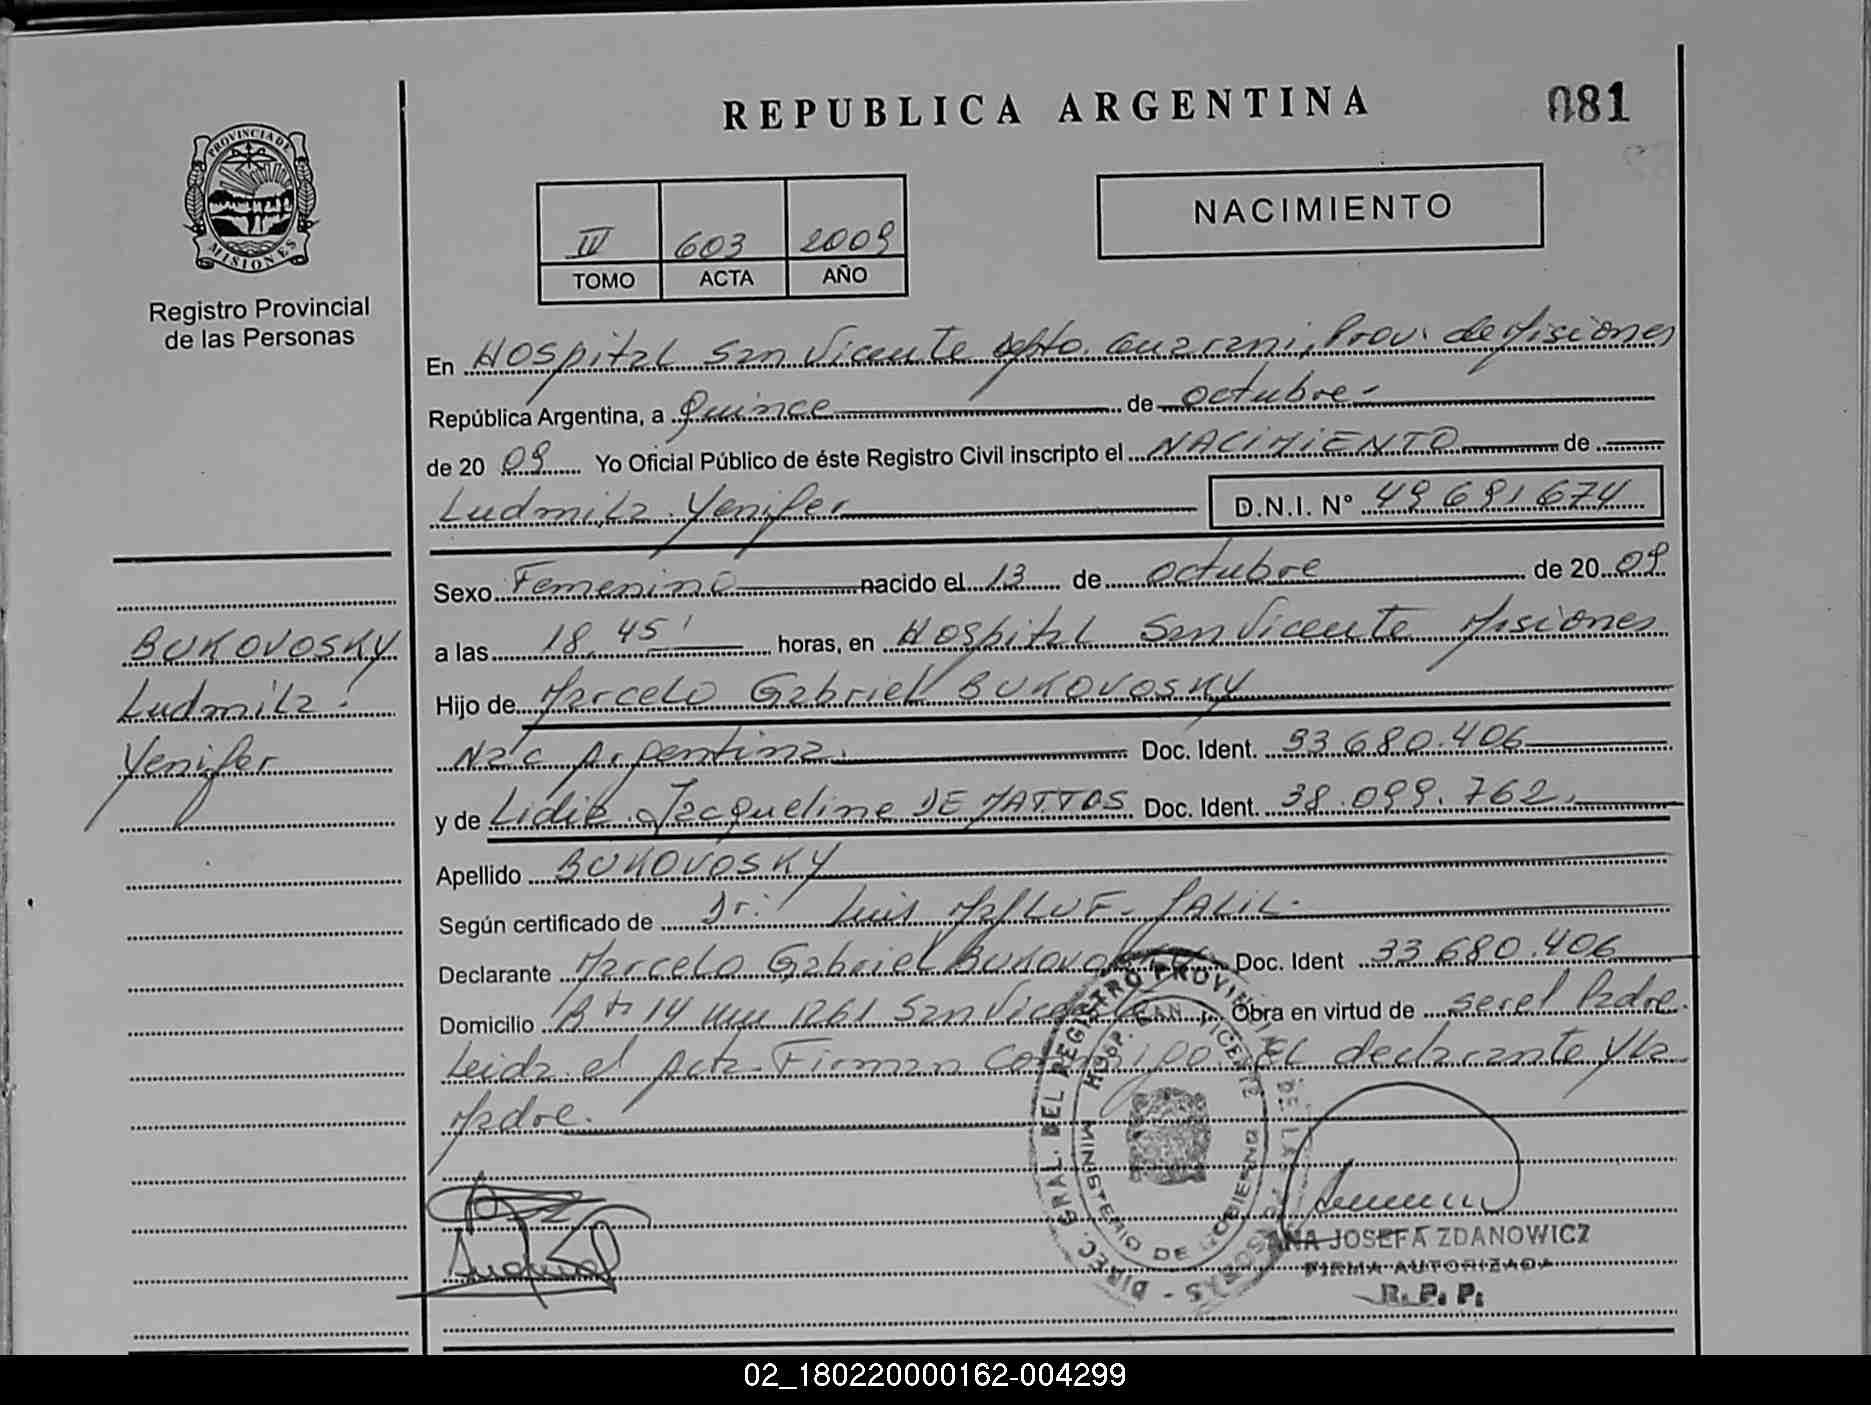 REPUBLICA ARGENTINA
081
PROVINCIA DE
MISIONES
Registro Provincial
de las Personas
IV 603 2009
TOMO ACTA AÑO
NACIMIENTO
En Hospital San Vicente dpto. Guarani, Prov. de Misiones
República Argentina, a Quince de octubre-
de 20 09 Yo Oficial Público de éste Registro Civil inscripto el NACIMIENTO de
Ludmila Yenifer D.N.I. Nº 49691674
Sexo Femenino nacido el 13 de octubre de 20 09
a las 18,45' horas, en Hospital San Vicente Misiones
Hijo de Marcelo Gabriel BUKOVOSKY
Nac Argentina. Doc. Ident. 33680.406
y de Lidia Jacqueline DE MATTOS Doc. Ident. 38.099.762.
Apellido BUKOVOSKY
Según certificado de Dr. Luis
Declarante Marcelo Gabriel Doc. Ident 33680.406
Domicilio Rta 14 1261 San Vicente Obra en virtud de ser el Padre.
Leida el Acta Firman Conmigo el declarante y la
Madre.
BUKOVOSKY
Ludmila
Yenifer
DIREC. GRAL. DEL REGISTRO PROVINCIAL DE LAS PERSONAS
HOSP. SAN VICENTE
MINISTERIO DE GOBIERNO
ANA JOSEFA ZDANOWICZ
FIRMA AUTORIZADA
R. P. P.
02_180220000162-004299